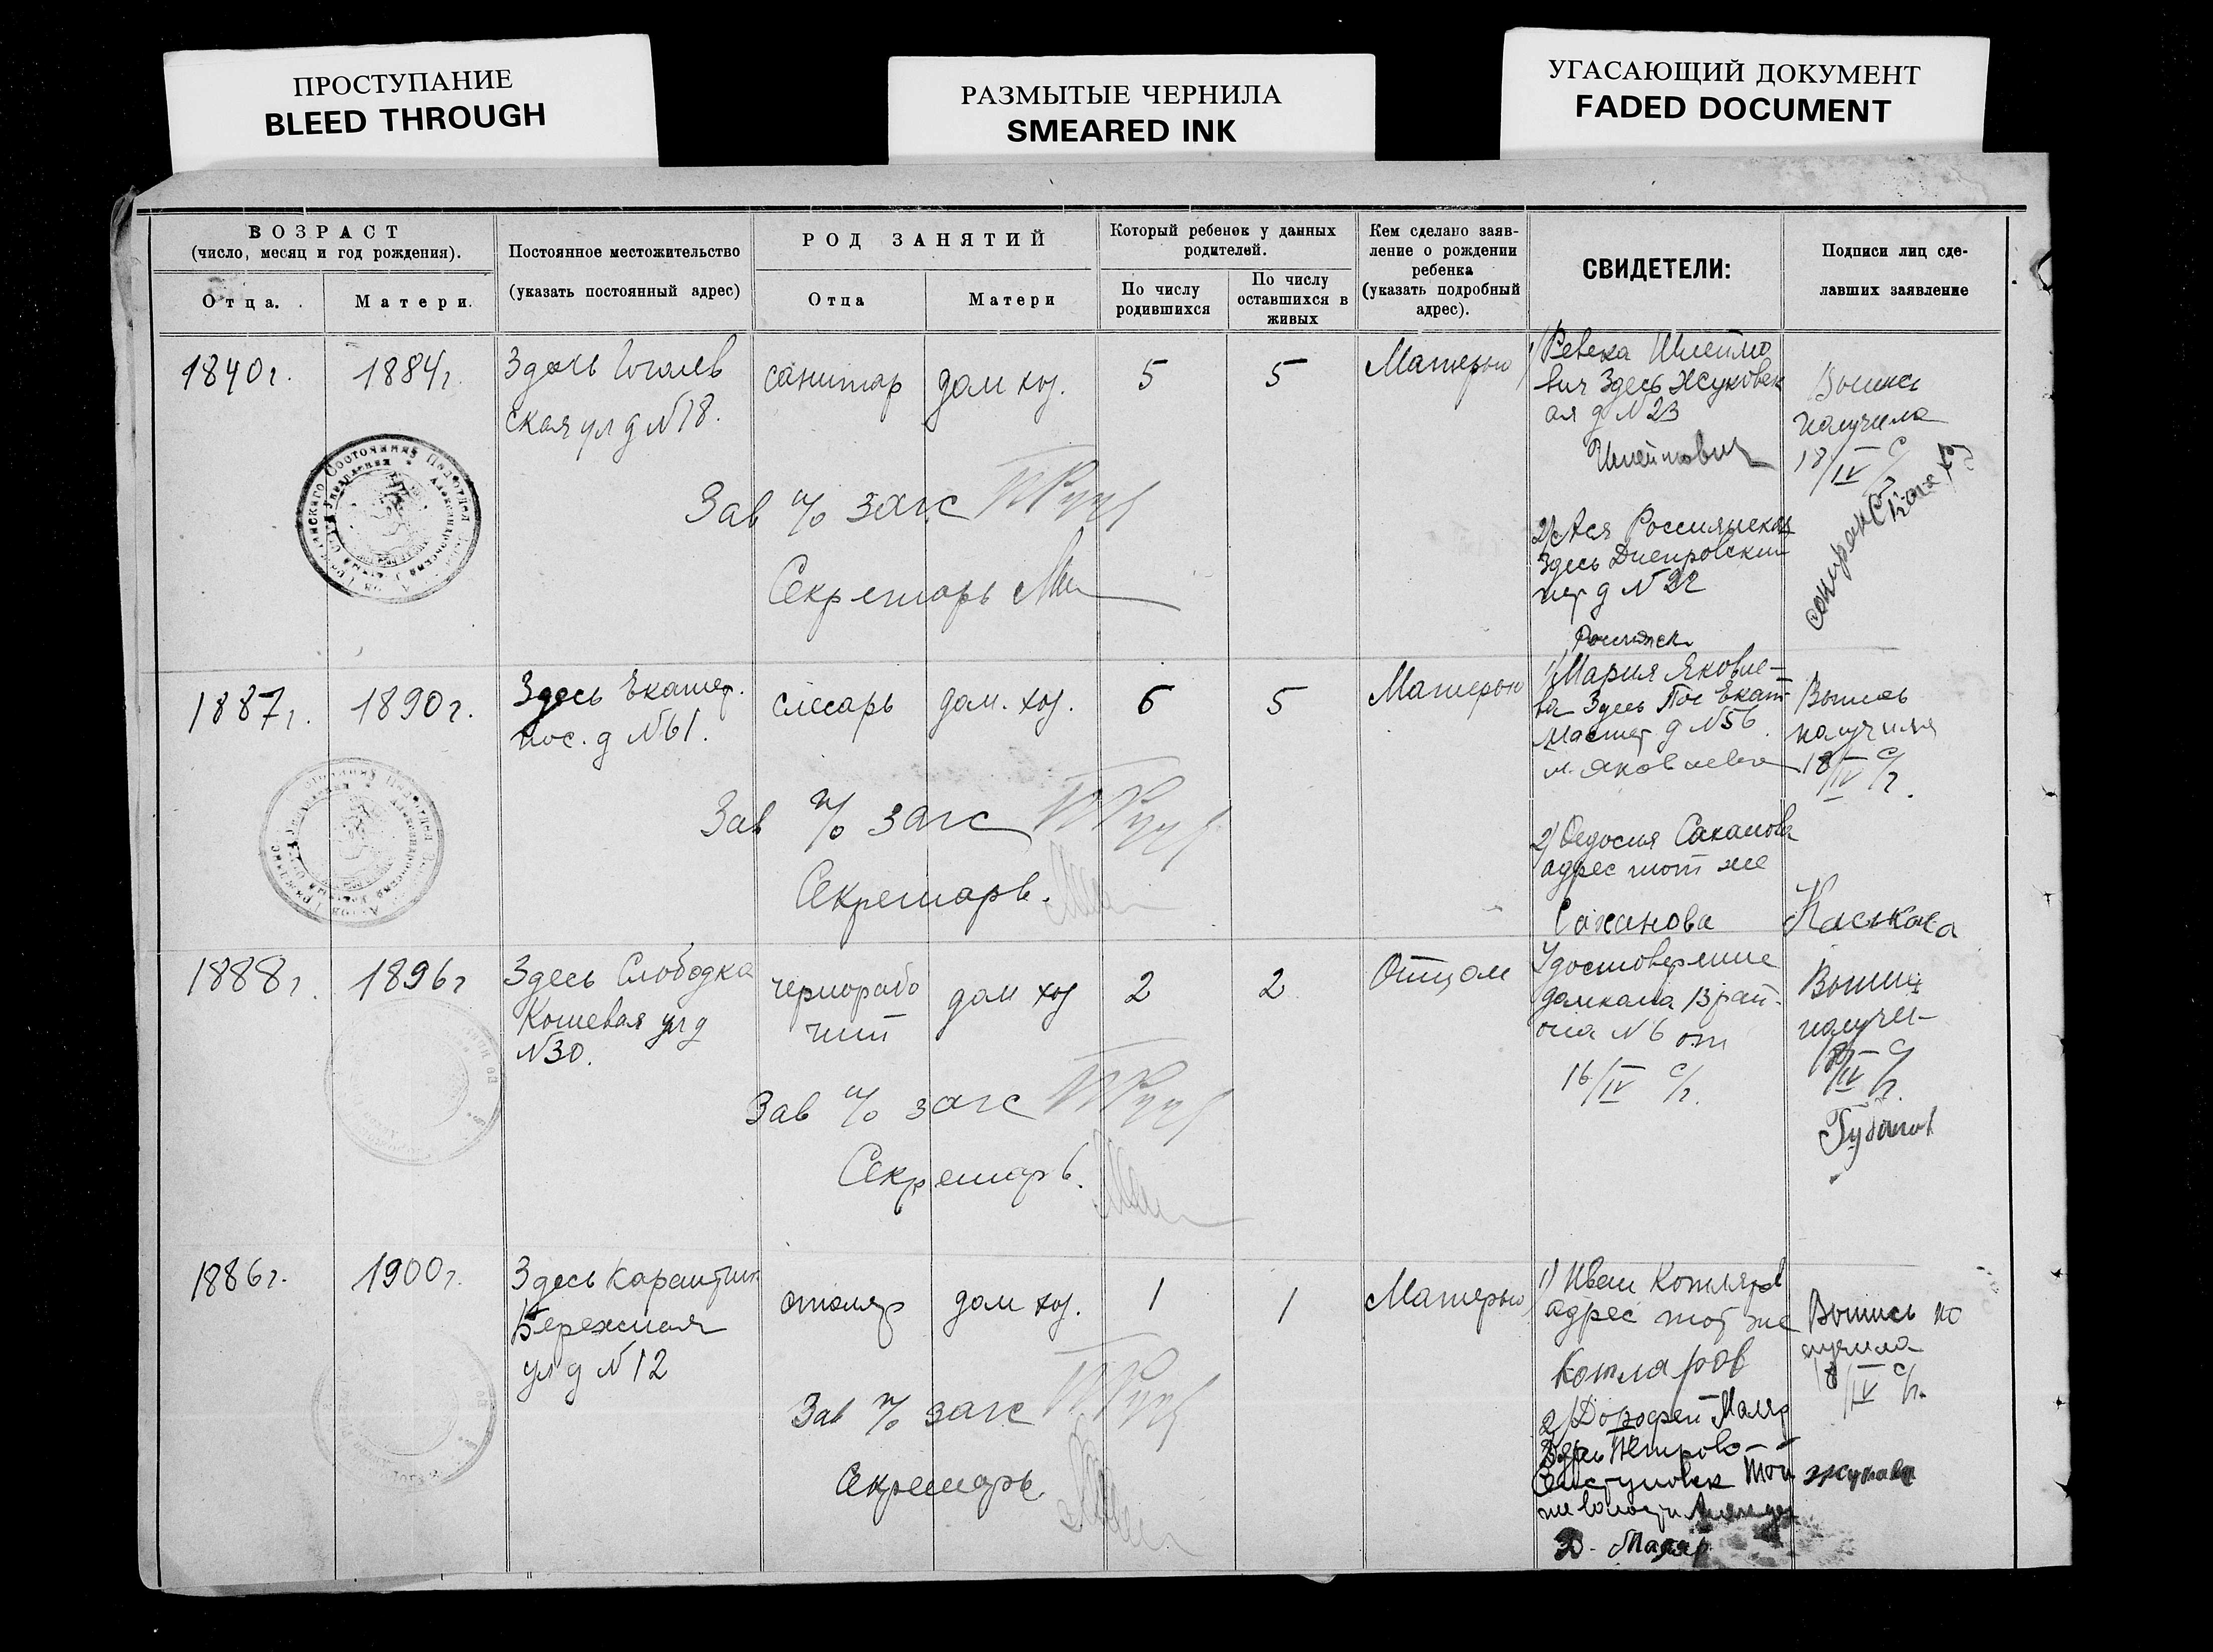 ПРОСТУПАНИЕ
BLEED THROUGH
РАЗМЫТЫЕ ЧЕРНИЛА
SMEARED INK
УГАСАЮЩИЙ ДОКУМЕНТ
FADED DOCUMENT
ВОЗРАСТ
(число, месяц и год рождения).
Отца.
Матери.
Постоянное местожительство
(указать постоянный адрес)
РОД ЗАНЯТИЙ
Отца
Матери
Который ребенок у данных
родителей.
По числу
родившихся
По числу
оставшихся в
живых
Кем сделано заяв-
ление о рождении
ребенка
(указать подробный
адрес).
СВИДЕТЕЛИ:
Подписи лиц сде-
лавших заявление
1840г.
1884г.
Здесь Гоголев
ская ул д №18.
санитар
дом хоз.
5
5
Матерью
1) Ревека Шлеймо
вич Здесь Жуковск
ая д №23
Шлеймович
2) Ася Россиянская
Здесь Днепровский
пер д №22
Выпись
получила
18/IV с/г
Зав п/о загс
Секретарь
1887г.
1890г.
Здесь Екатер.
пос. д №61.
слесарь
дом. хоз.
6
5
Матерью
1) Мария Яковле-
ва Здесь Пос Екат
мастер д №56.
м. Яковлева
2) Федосия Саханова
адрес тот же
Саханова
Выпись
получила
18/IV с/г.
Зав п/о загс
Секретарь.
1888г.
1896г
Здесь Слободка
Кошевая ул д
№30.
чернорабо
чий
дом хоз
2
2
Отцом
Удостоверение
домкома 13 рай-
она №6 от
16/IV с/г.
Выпись
получил
18/IV с/г.
Губанов
Зав п/о загс
Секретарь.
1886г.
1900г.
Здесь Карантин
Бережная
ул д №12
столяр
дом хоз.
1
1
Матерью
1) Иван Котляров
адрес тот же
Котляров
2) Дорофей Маляр
Д. Маляр
Выпись по
лучила
18/IV с/г.
Зав п/о загс
Секретарь